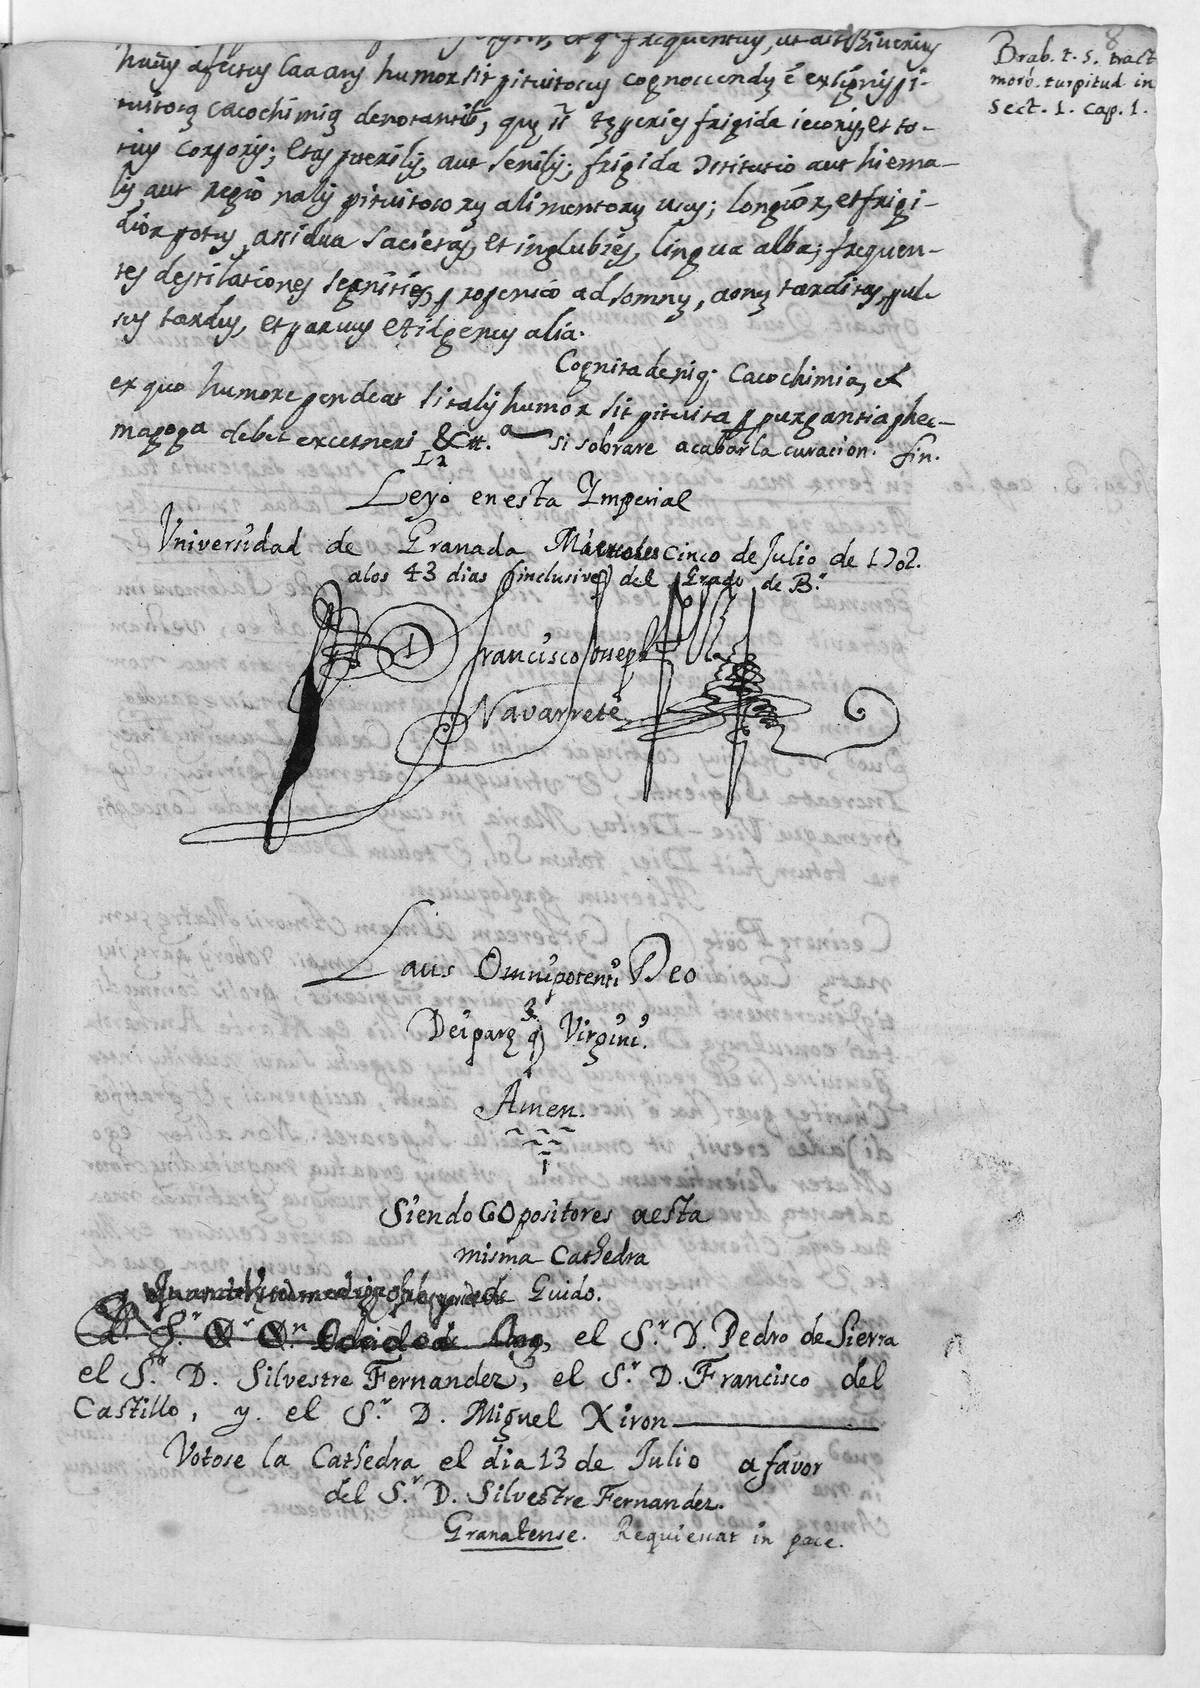 8
Brab. t. 5. tract
morb. turpitud in
Sect. 1. Cap. 1.
et qᵉ frequentius, ut ait Riverius
huius afectus Caaans humor sit pituitosus cognoscendus ē ex signis pi-
tuitosā Cacochimiā denotantib, quę st tēperies frigida iecoris, et to-
tius corporis; Etas puerilis, aut senilis; frigida Cstitutio aut hiema-
lis, aut regio nalis pituitosorū alimentorū usus; longior, et frigi-
dior potus, assidua Sacietas, et inglubies, lingua alba; frequen-
tes destilationes segnities, propensio ad somnū, aonū tarditas, pul-
sus tardus, et parvus et id genus alia.
Cognita deniq; Cacochimia, et
ex quo humore pendeat si talis humor sit pituita p purgantia phec-
magoga debet excerneri &ctᵃ si sobrare acabar la curacion. fin.
La
Leyó en esta Ymperial
Vniversidad de Granada Miercoles cinco de Julio de 1702.
a los 43 dias (inclusive) del Grado de Bʳ
D Francisco Joseph
Navarrete
Laus Omnipotenti Deo
Deiparę q3 Virgini.
Amen.
Siendo COpositores a esta
misma Cathedra
de Guido.
el Sʳ. D. Pedro de Sierra
el Sʳ. D. Silvestre Fernandez, el Sʳ. D. Francisco del
Castillo, y. el Sʳ. D. Miguel Xiron
Votose la Cathedra el dia 13 de Julio a favor
del Sʳ. D. Silvestre Fernandez.
Granatense. Requiescat in pace.